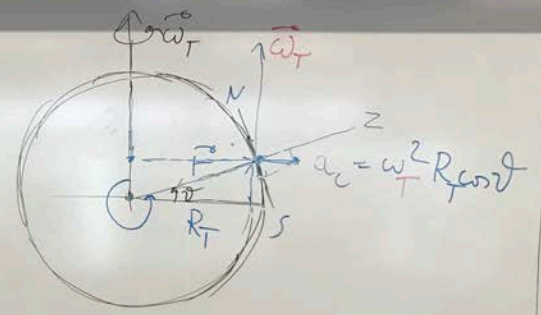 ω⃗_T
ω⃗_T
N
Z
r⃗
a_c = ω_T² R_T cos ϑ
ϑ
R_T
S